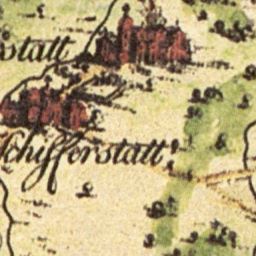 statt
Schifferstatt